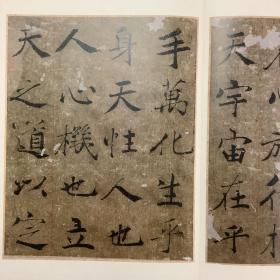 天宇宙在乎
手萬化生乎
身天性人也
人心機也立
天之道以定